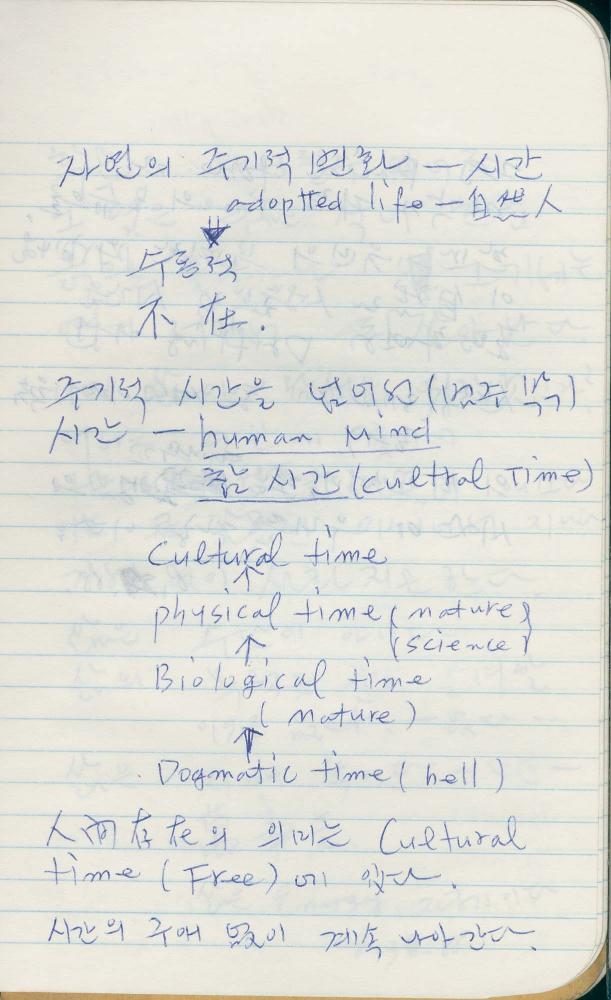 자연의 주기적 변화 — 시간
adoptted life — 自然人
수동적
不在.
주기적 시간을 넘어선 (범주 밖)
시간 — human Mind
출 시간 (cultral Time)
Cultural time
physical time (nature)
(science)
Biological time
(nature)
Dogmatic time (hell)
人間存在의 의미는 Cultural
time (Free)에 있다.
시간의 구애 없이 계속 나아간다.